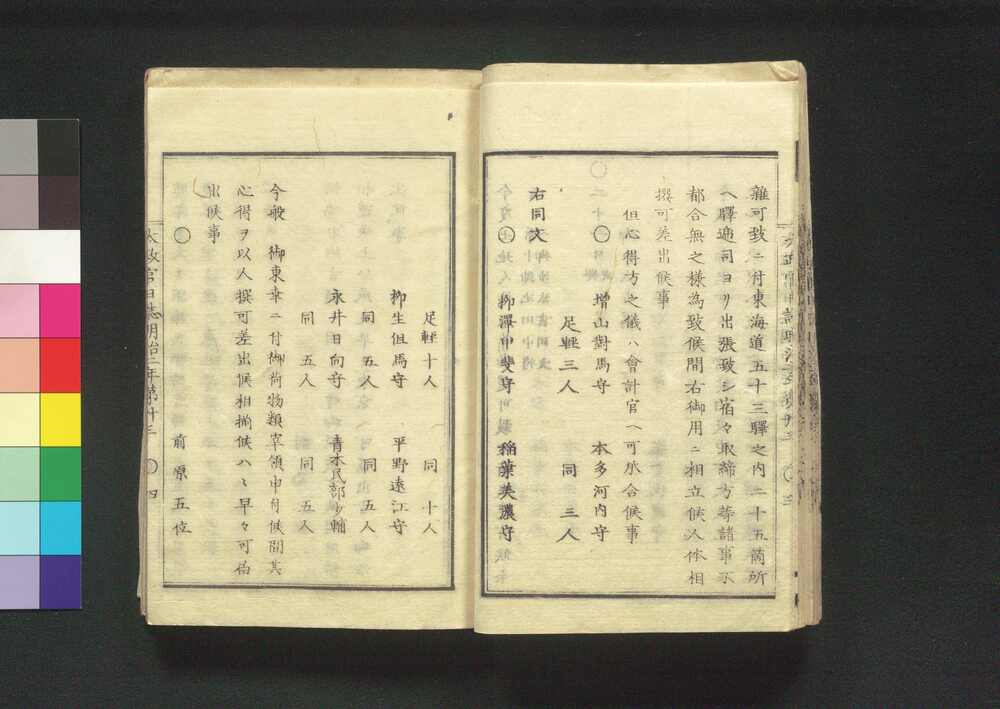 雜可致ニ付東海道五十三驛之内二十五箇所
ヘ驛遞司ヨリ出張致シ宿々取締方等諸事不
都合無之樣為致候間右御用ニ相立候人体相
撰可差出候事
但心得方之儀ハ會計官ヘ可承合候事
〇 增山對馬守 本多河内守
足輕三人 同 三人
右同文
〇 柳澤甲斐守 稲葉美濃守
足輕十人 同 十人
柳生但馬守 平野遠江守
同 五人 同 五人
永井日向守 青木民部少輔
同 五人 同 五人
今般 御東幸ニ付御荷物類宰領申付候間其
心得ヲ以人撰可差出候相揃候ハヽ早々可届
出候事
〇 前原五位
太政官日誌明治二年第廿三 〇 四